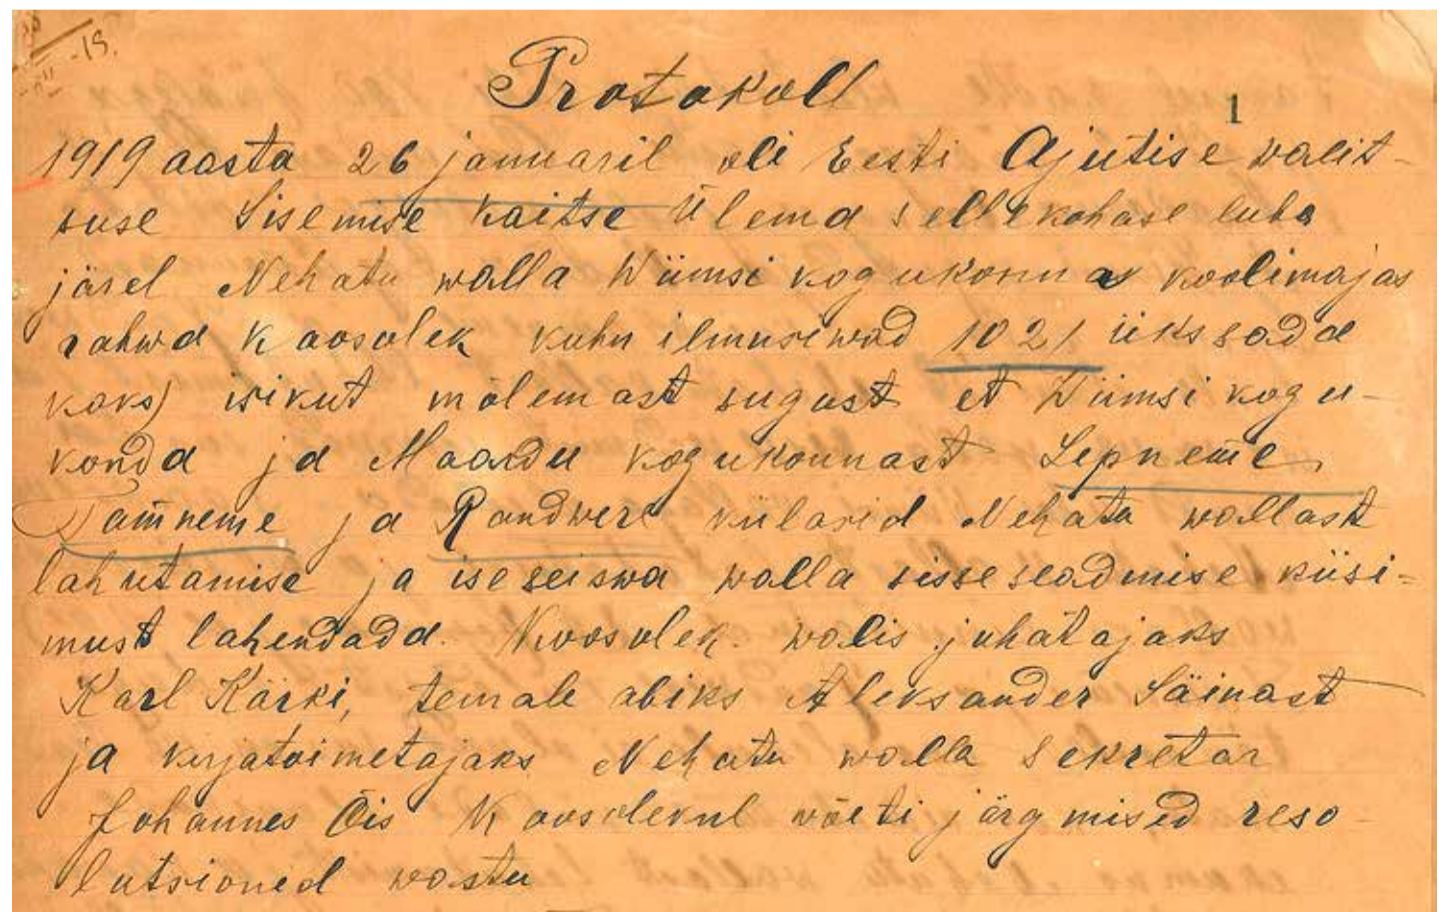 -19.
Protokoll
1
1919 aasta 26 januaril oli Eesti Ajutise walit-
suse Sisemise kaitse Ülema sellekohase luba
järel Nehatu walla Wiimsi kogukonna koolimajas
rahwa koosolek kuhu ilmusiwad 102 / üks sada
kaks) isikut mõlemast sugust et Wiimsi kogu-
konda ja Maardu kogukonnast Lepneeme
Tammneme ja Randwere külasid Nehatu wallast
lahutamise ja iseseiswa walla sisseseadmise küsi-
must lahendada. Koosolek walis juhatajaks
Karl Kärki, temale abiks Aleksander Säinast
ja kirjatoimetajaks Nehatu walla sekretär
Johannes Õis Koosolekul wõeti järgmised reso-
lutsioned wastu